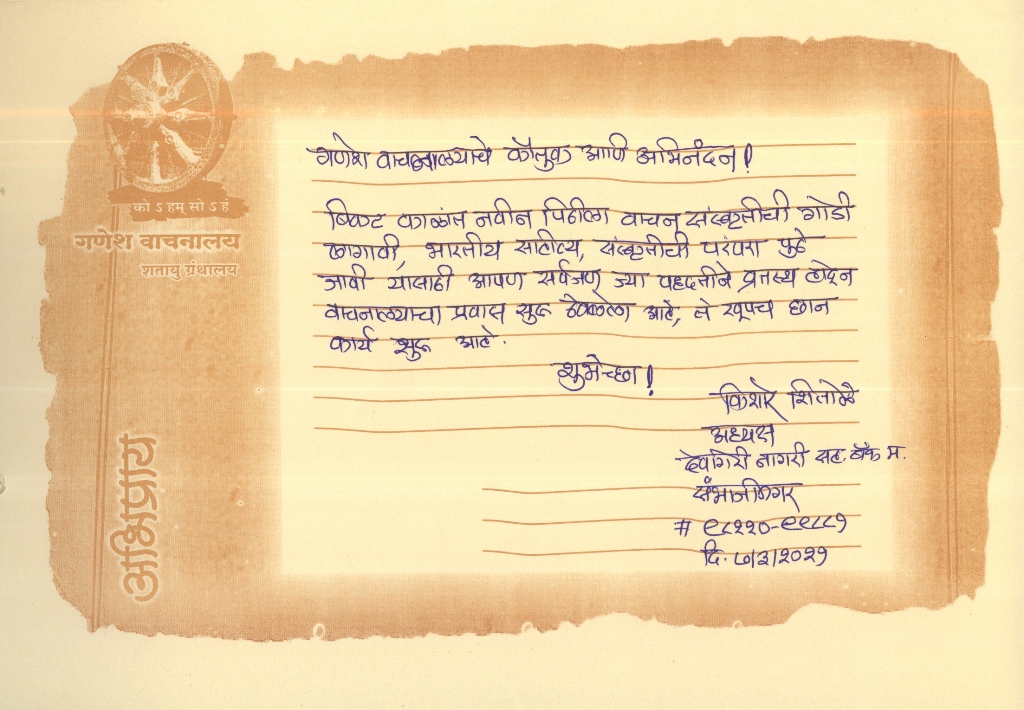 को ऽ हम् सो ऽ हं
गणेश वाचनालय
शतायु ग्रंथालय
गणेश वाचनालयाचे कौतुक आणि अभिनंदन!
बिकट काळात नवीन पिढीला वाचन संस्कृतीची गोडी
लागावी, भारतीय साहीत्य, संस्कृतीची परंपरा पुढे
जावी यासाठी आपण सर्वजण ज्या पध्दतीने व्रतस्थ होऊन
वाचनालयाचा प्रवास सुरू ठेवलेला आहे, ते खूपच छान
कार्य सुरू आहे.
शुभेच्छा!
किशोर शितोळे
अध्यक्ष
देवगिरी नागरी सह. बँक म.
संभाजीनगर
# ९८२२०-९९८८१
दि. ७/३/२०२१
अभिप्राय